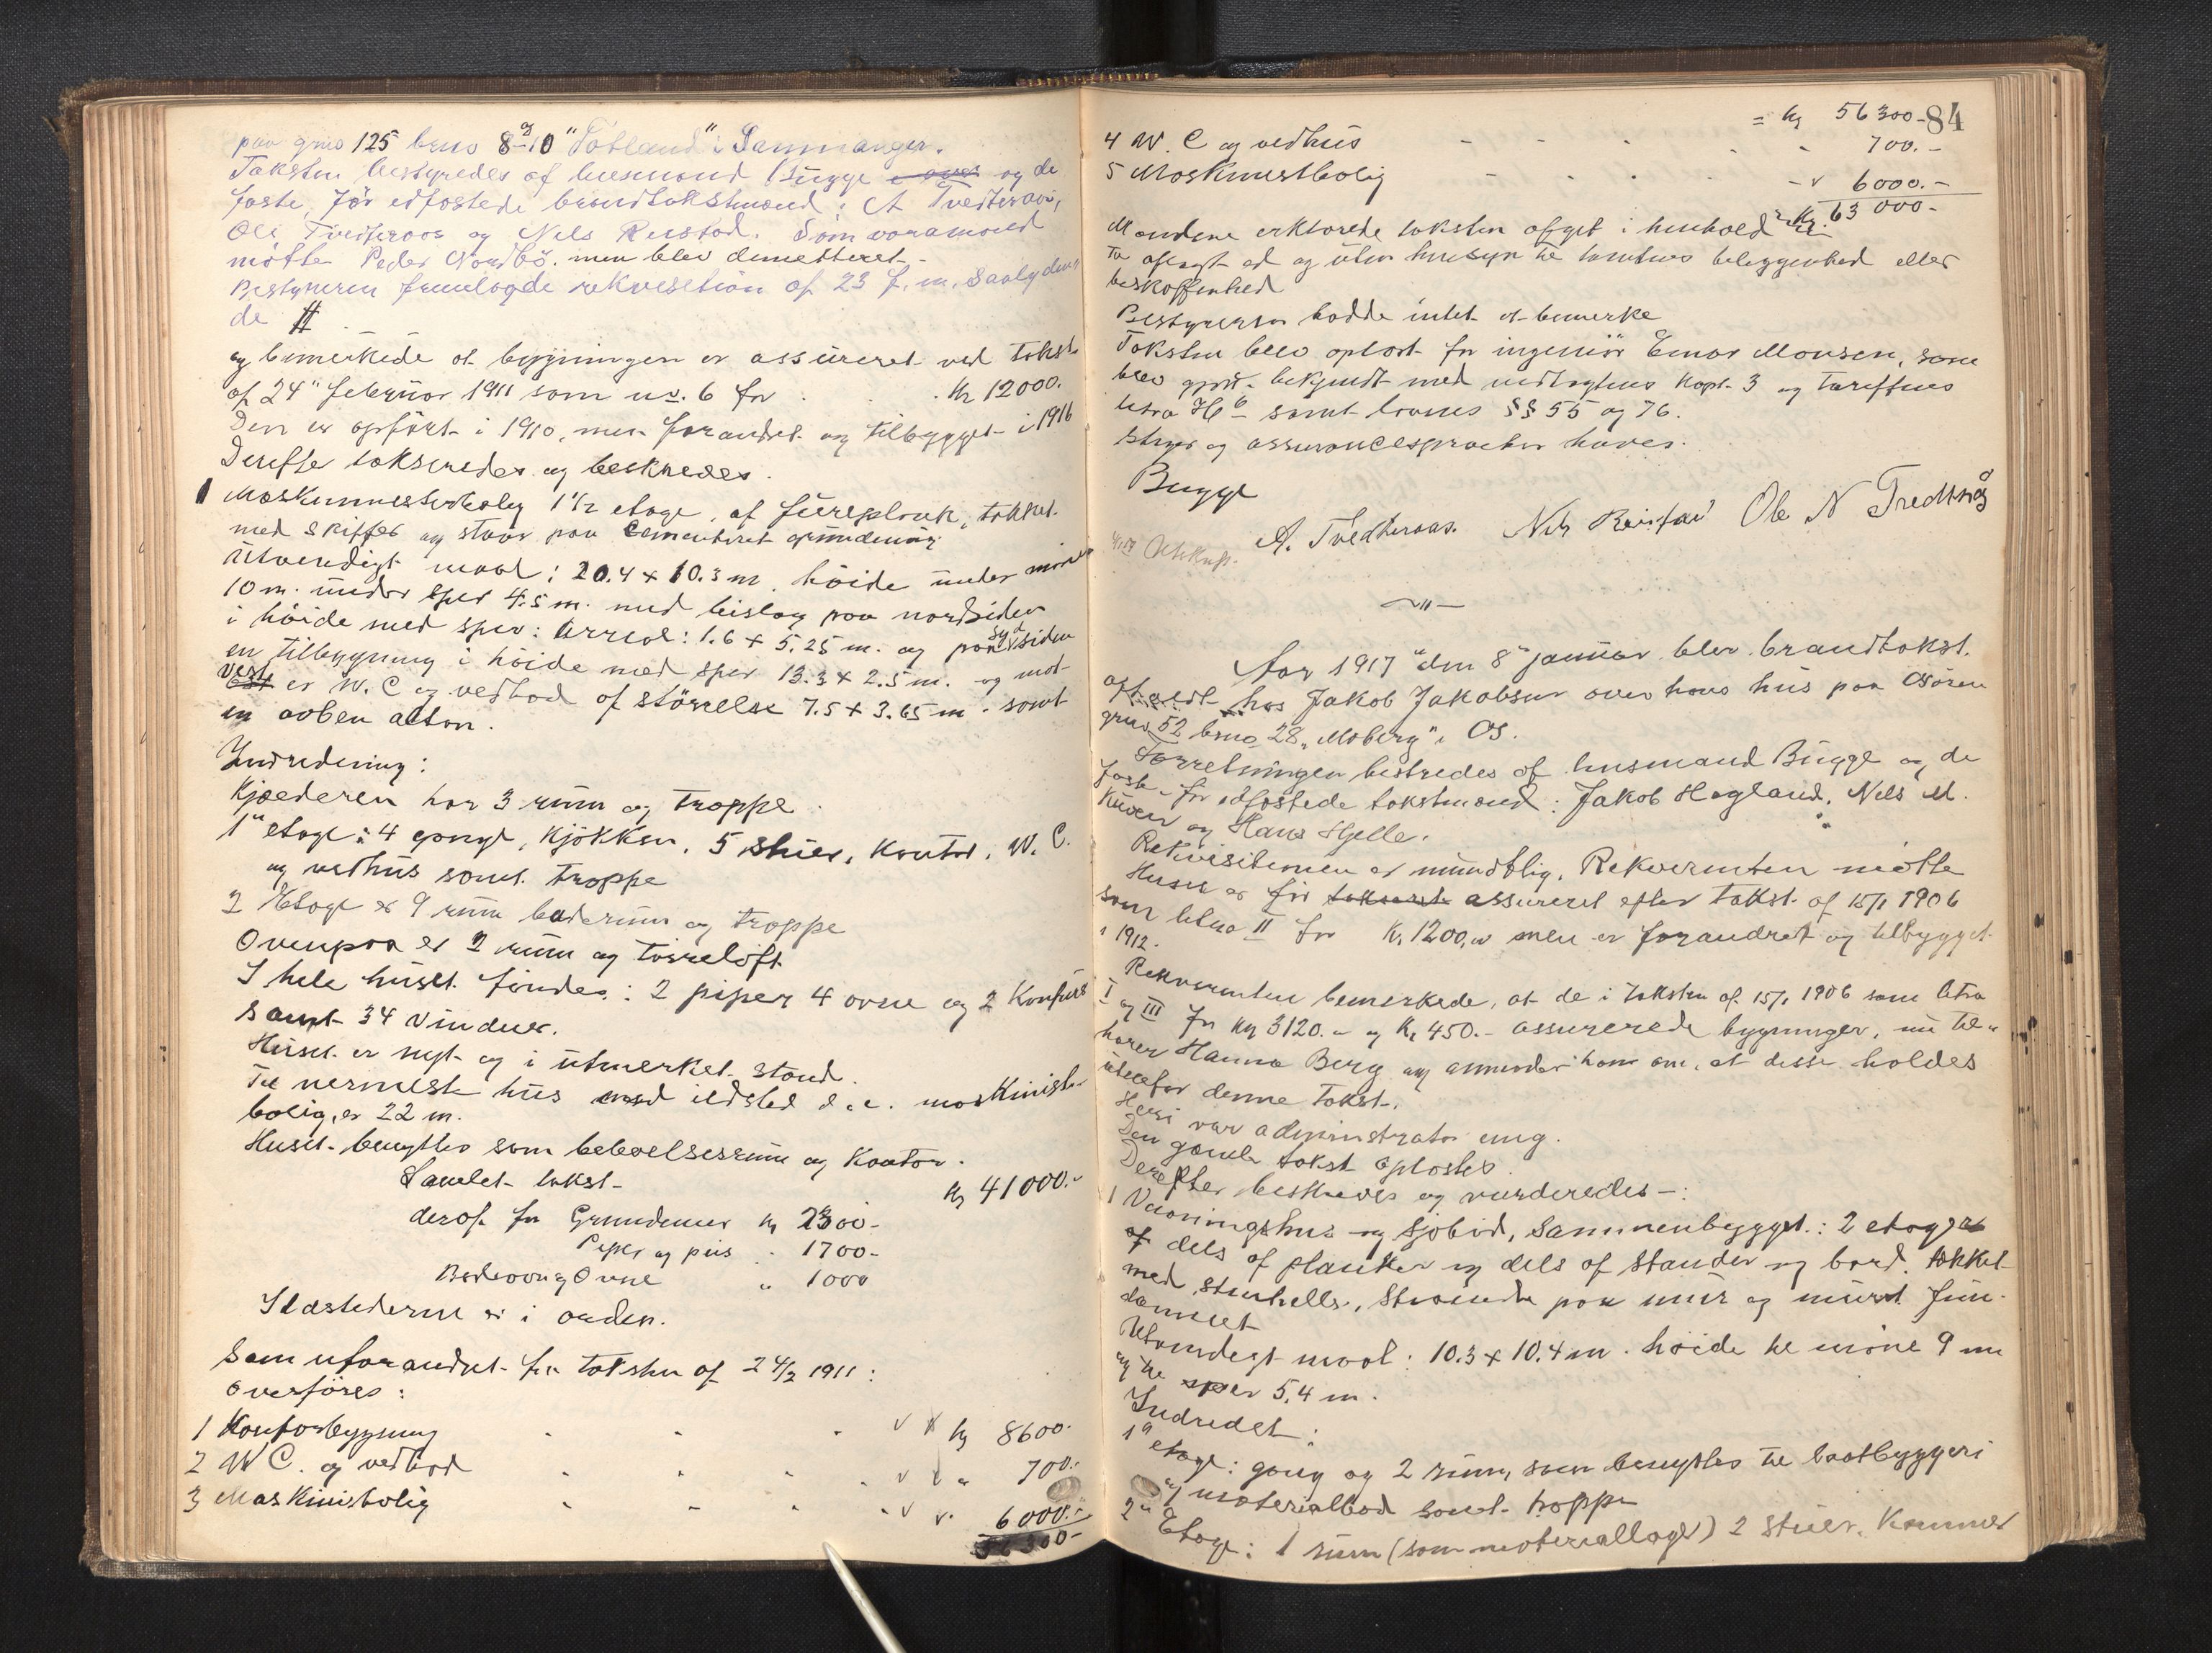 paa gno 125 bruno 8 og 10 "Totland" i Sammanger.
Taksten bestyredes af lensmand Bugge og de
faste, før edfæstede brandtakstmænd: A Tvedteraas,
Ole Tvedteraas og Nels Reistad. Som varamand
møtte Peder Nordbø. men blev demitteret.
Bestyreren fremlagde rekvesition af 23 f.m. saalyden
de #
og bemerkede at bygningen er assureret ved takst
af 24de februar 1911 som no. 6 for . . Kr 12000.
Den er opført i 1910, men forandret og tilbygget i 1916
Derefter takseredes og beskrevdes.
1 Maskinmesterbolig 1 1/2 etage, af fureplank, tækket
med skiffer og staar paa cementeret grundmur
Utvendigt maal: 20.4 x 10.3 m. høide under møne
10 m. under sper 4.5 m. med bislag paa nordsiden
i høide med sper: Areal: 1.6 x 5.25 m. og paa sydsiden
en tilbygning i høide med sper 13.3 x 2.5 m. og mot
vest er W.C og vedbod af størrelse 7.5 x 3.65 m. samt
en aaben altan.
Indredning:
Kjælderen har 3 rum og trappe.
1ste etage: 4 gange, kjøkken, 5 stuer, kontor, W.C.
og vedhus samt trappe
2 Etage er 9 rum baderum og trappe
Ovenpaa er 2 rum og tørreloft
I hele huset findes: 2 piper 4 ovne og 2 komfurer
samt 34 vinduer.
Huset er nyt og i utmerket stand.
Til nermeste hus med ildsted d.e. maskinist
bolig, er 22 m.
Huset benyttes som beboelsesrum og kontor.
Samlet takst Kr 41000.-
deraf for Grundmur Kr 2300-
Piper og piis " 1700-
Badeovn og Ovne " 1000
Ildstederne er i orden.
Som uforandret fra taksten af 24/2 1911:
overføres:
1 Kontorbygning Kr 8600.-
2 W C. og vedbod " 700.-
3 Maskinistbolig " 6000.-
84
= Kr 56300-
4 W. C og vedhus 700.-
5 Maskinistbolig 6000.-
Kr. 63 000-
Mændene erklærede taksten afgit i henhold
til aflagt ed og uten hensyn til tomtens beliggenhed eller
beskaffenhed
Bestyreren hadde intet at bemerke
Taksten blev oplæst for ingeniør Einar Monsen, som
blev gjort bekjendt med vedtægtens kapt. 3 og tariffens
litra H 6 samt lovens §§ 55 og 76.
Styrer og assurancesprøiter haves.
Bugge
A. Tvedteraas. Nils Reistad Ole N Tvedterås
Utskrift.
—"—
Aar 1917 den 8de januar blev brandtakst
afholdt hos Jakob Jakobsen over hans hus paa Osøren
gno 52 bruno 28 "Moberg" i Os.
Forretningen bestyredes af lensmand Bugge og de
faste før edfæstede takstmænd: Jakob Hagland, Nels M.
Kuven og Hans Hjelle.
Rekvisitionen er mundtlig. Rekvirenten møtte
Huset er før takseret assureret efter takst af 15/1 1906
som litra II for Kr 1200,00 men er forandret og tilbygget
i 1912.
Rekvirenten bemerkede, at de i taksten af 15/1 1906 som litra
I og III for Kr 3120.- og Kr 450.- assurerede bygninger, nu til-
hører Hanna Berg og anmoder han om, at disse holdes
utenfor denne takst.
Heri var administrator enig.
Den gamle takst oplæstes.
Derefter beskreves og vurderedes -:
1 Vaaningshus og sjøbod, sammenbygget: 2 etager
af dels af planker og dels af stender og bord. tækket
med stenheller, staaende paa mur og muret fun-
dament
Utvendigt maal: 10.3 x 10.4 m. høide til møne 9 m
og til sper 5,4 m.
Indredet:
1ste etage: gang og 2 rum, som benyttes til baatbyggeri
og materialbod samt trappe
2den Etage: 1 rum (som materiallager) 2 stuer, kammer